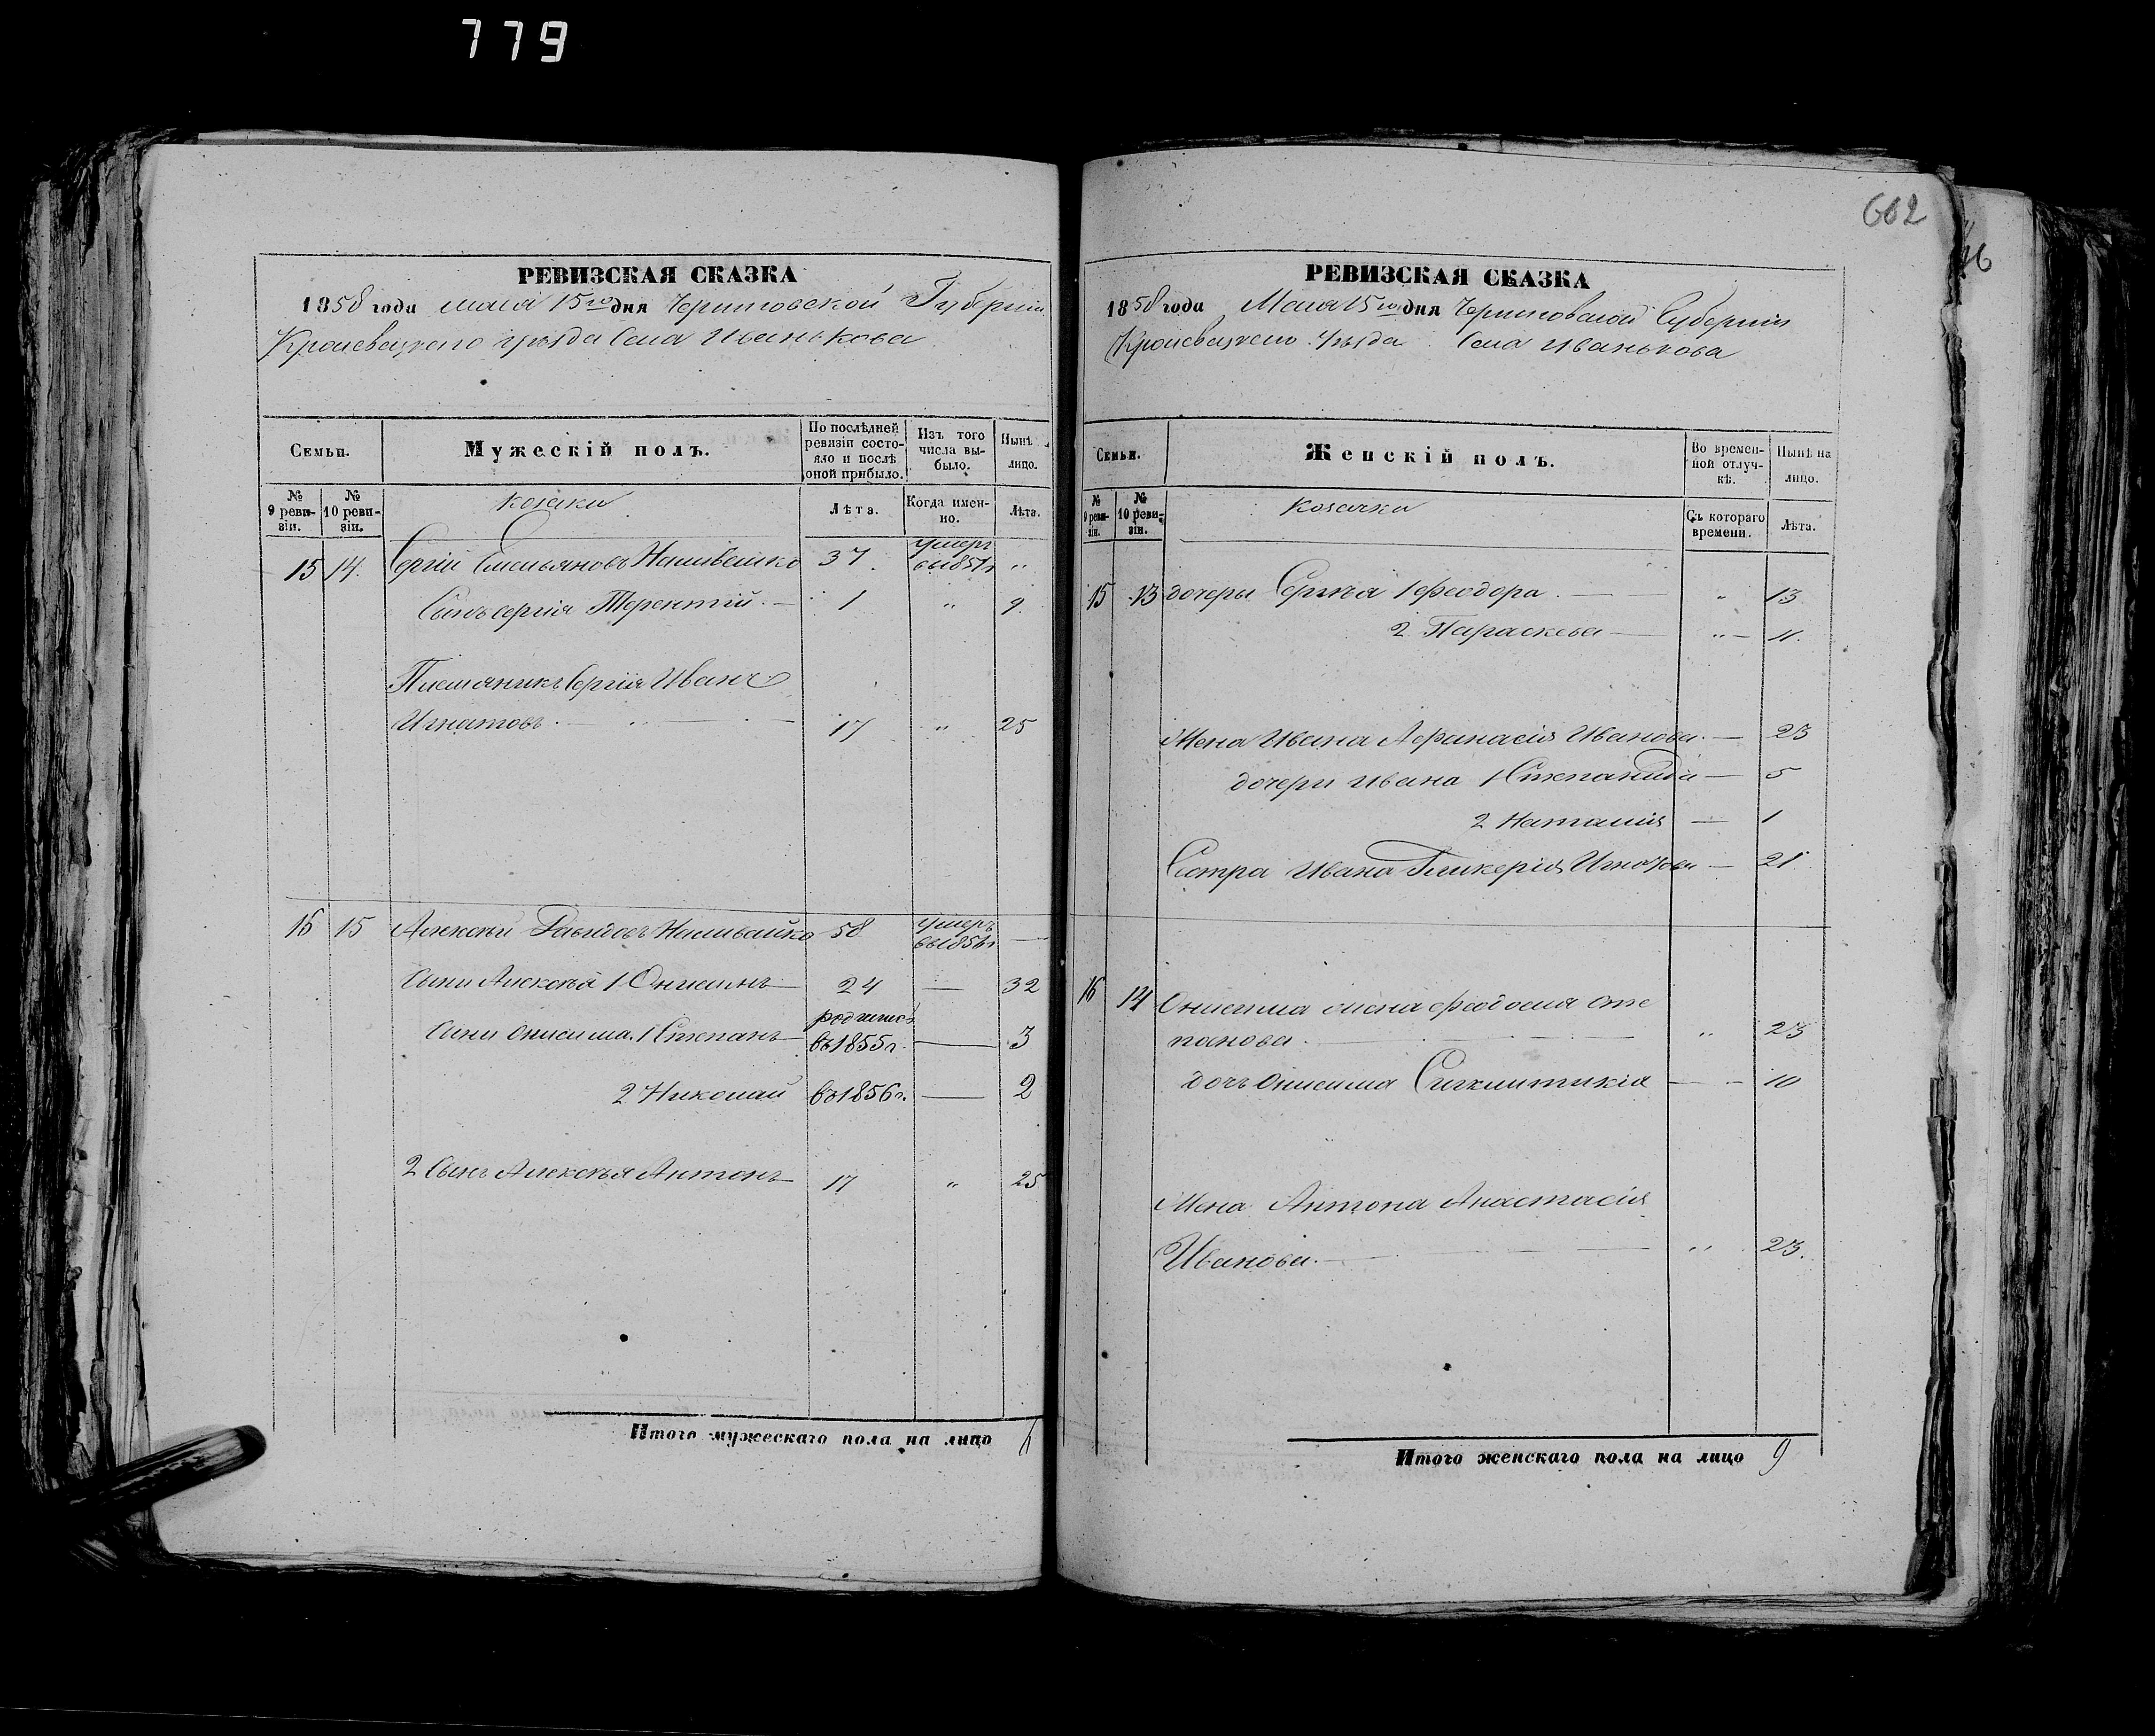 779
602
РЕВИЗСКАЯ СКАЗКА
1858 года мая 15го дня Черниговской Губерніи
Кролевецкаго уѣзда Села Иванькова
Семьи.
Мужескій полъ.
По послѣдней ревизіи состояло и послѣ оной прибыло.
Изъ того числа выбыло.
Нынѣ лицо.
№ 9 ревизіи.
№ 10 ревизіи.
козаки
Лѣта.
Когда именно.
Лѣта.
15 14. Сергій Емельяновъ Наливайко 37. умеръ „
Сынъ Сергія Терентій. — 1 „ 9.
Племяникъ Сергія Иванъ
Игнатовъ. — 17 „ 25
16 15 Алексѣй Давыдовъ Наливайко 58 умеръ —
Сыни Алексѣя 1 Онисимъ 24 — 32
Сыни Онисима. 1 Степанъ родился въ 1855 г. — 3
2 Николай въ 1856 г. — 2
2 Сынъ Алексѣя Антонъ 17 „ 25
Итого мужескаго пола на лицо 6
РЕВИЗСКАЯ СКАЗКА
1858 года Мая 15го дня Черниговской Губерніи
Кролевецкаго Уѣзда Села Иванькова
Семьи.
Женскій полъ.
Во временной отлучкѣ.
Нынѣ на лицо.
№ 9 ревизіи.
№ 10 ревизіи.
козачки
Съ котораго времени.
Лѣта.
15 13 дочеры Сергія 1 Феодора. — „ 13
2 Параскева — „ — 11.
Жена Ивана Афанасія Иванова. — 23
дочери Ивана 1 Степанида — 5
2 Наталія — 1
Сестра Ивана Гликерія Игнатова — 21
16 14 Онисима жена Феодосия Сте
панова. — „ 23
дочь Онисима — 10
Жена Антона Анастасія
Иванова. — „ 23.
Итого женскаго пола на лицо 9